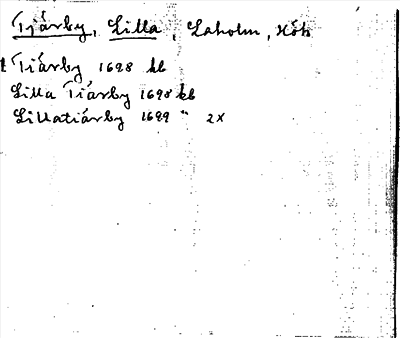 Tjärby, Lilla, Laholm, Hök
t Tiärby 1698 kb
Lilla Tiärby 1698 kb
Lillatiärby 1699 " 2x